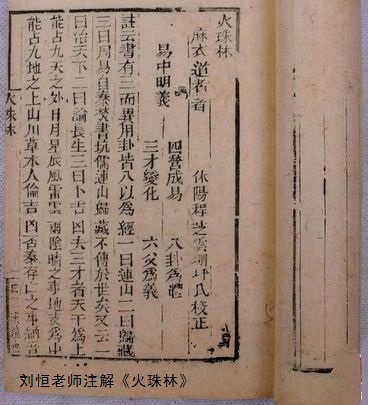 火珠林
麻衣道者著 休陽程芝雲 坪氏校正
四營成易 八卦為體
易中明義
三才變化 六爻為義
註云書有三而異用卦皆八以為經一曰連山二曰歸藏
三曰周易自秦焚書坑儒連山歸藏不傳於世矣又云一
曰治天下二曰論長生三曰卜吉凶夫三才者天為上
能占九天之外日月星辰風雷雲雨陰晴之事地支為中
能占九地之上山川草木人倫吉凶否泰存亡之事納音
火珠林
刘恒老师注解《火珠林》